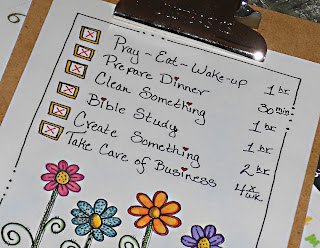 Pray - Eat - Wake-up 1 hr
Prepare Dinner 30 min
Clean Something 1 hr
Bible Study 1 hr
Create Something 2 hr
Take Care of Business 4 x wk